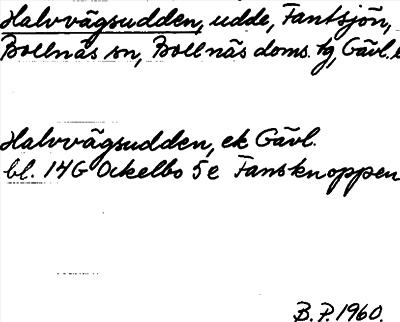 Halvvägsudden, udde, Fantsjön,
Bollnäs sn, Bollnäs doms. tg, Gävl.
Halvvägsudden, ek Gävl.
bl. 14G Ockelbo 5e Fansknoppen
B.P. 1960.